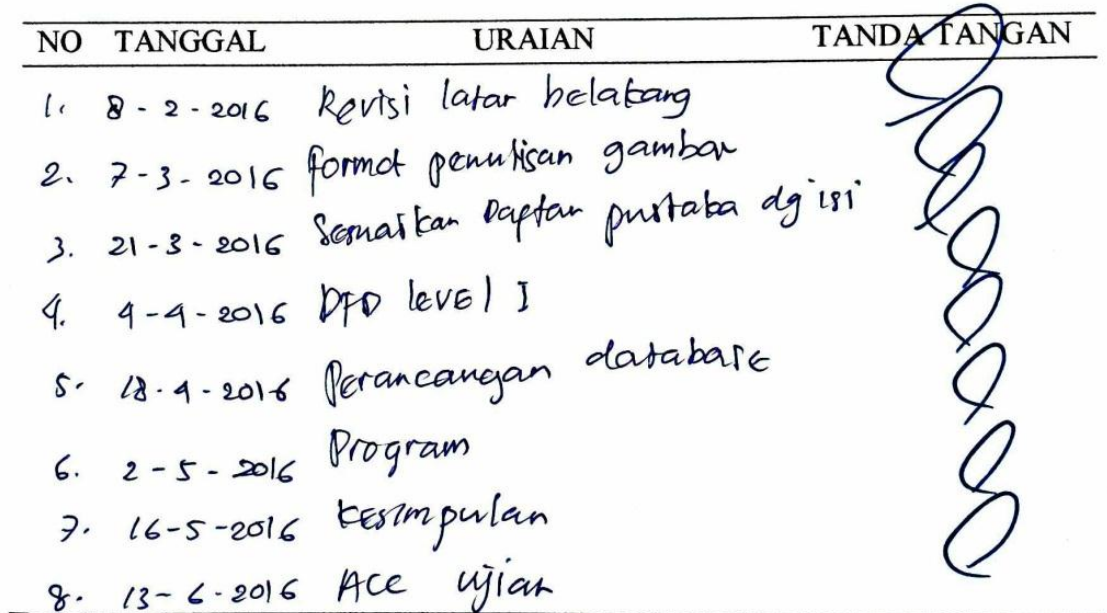 NO TANGGAL URAIAN TANDA TANGAN
1. 8 - 2 - 2016 Revisi latar belakang
2. 7 - 3 - 2016 format penulisan gambar
3. 21 - 3 - 2016 Sesuaikan Daftar pustaka dg isi
4. 4 - 4 - 2016 DFD level I
5. 18 - 4 - 2016 Perancangan database
6. 2 - 5 - 2016 Program
7. 16 - 5 - 2016 kesimpulan
8. 13 - 6 - 2016 Acc ujian